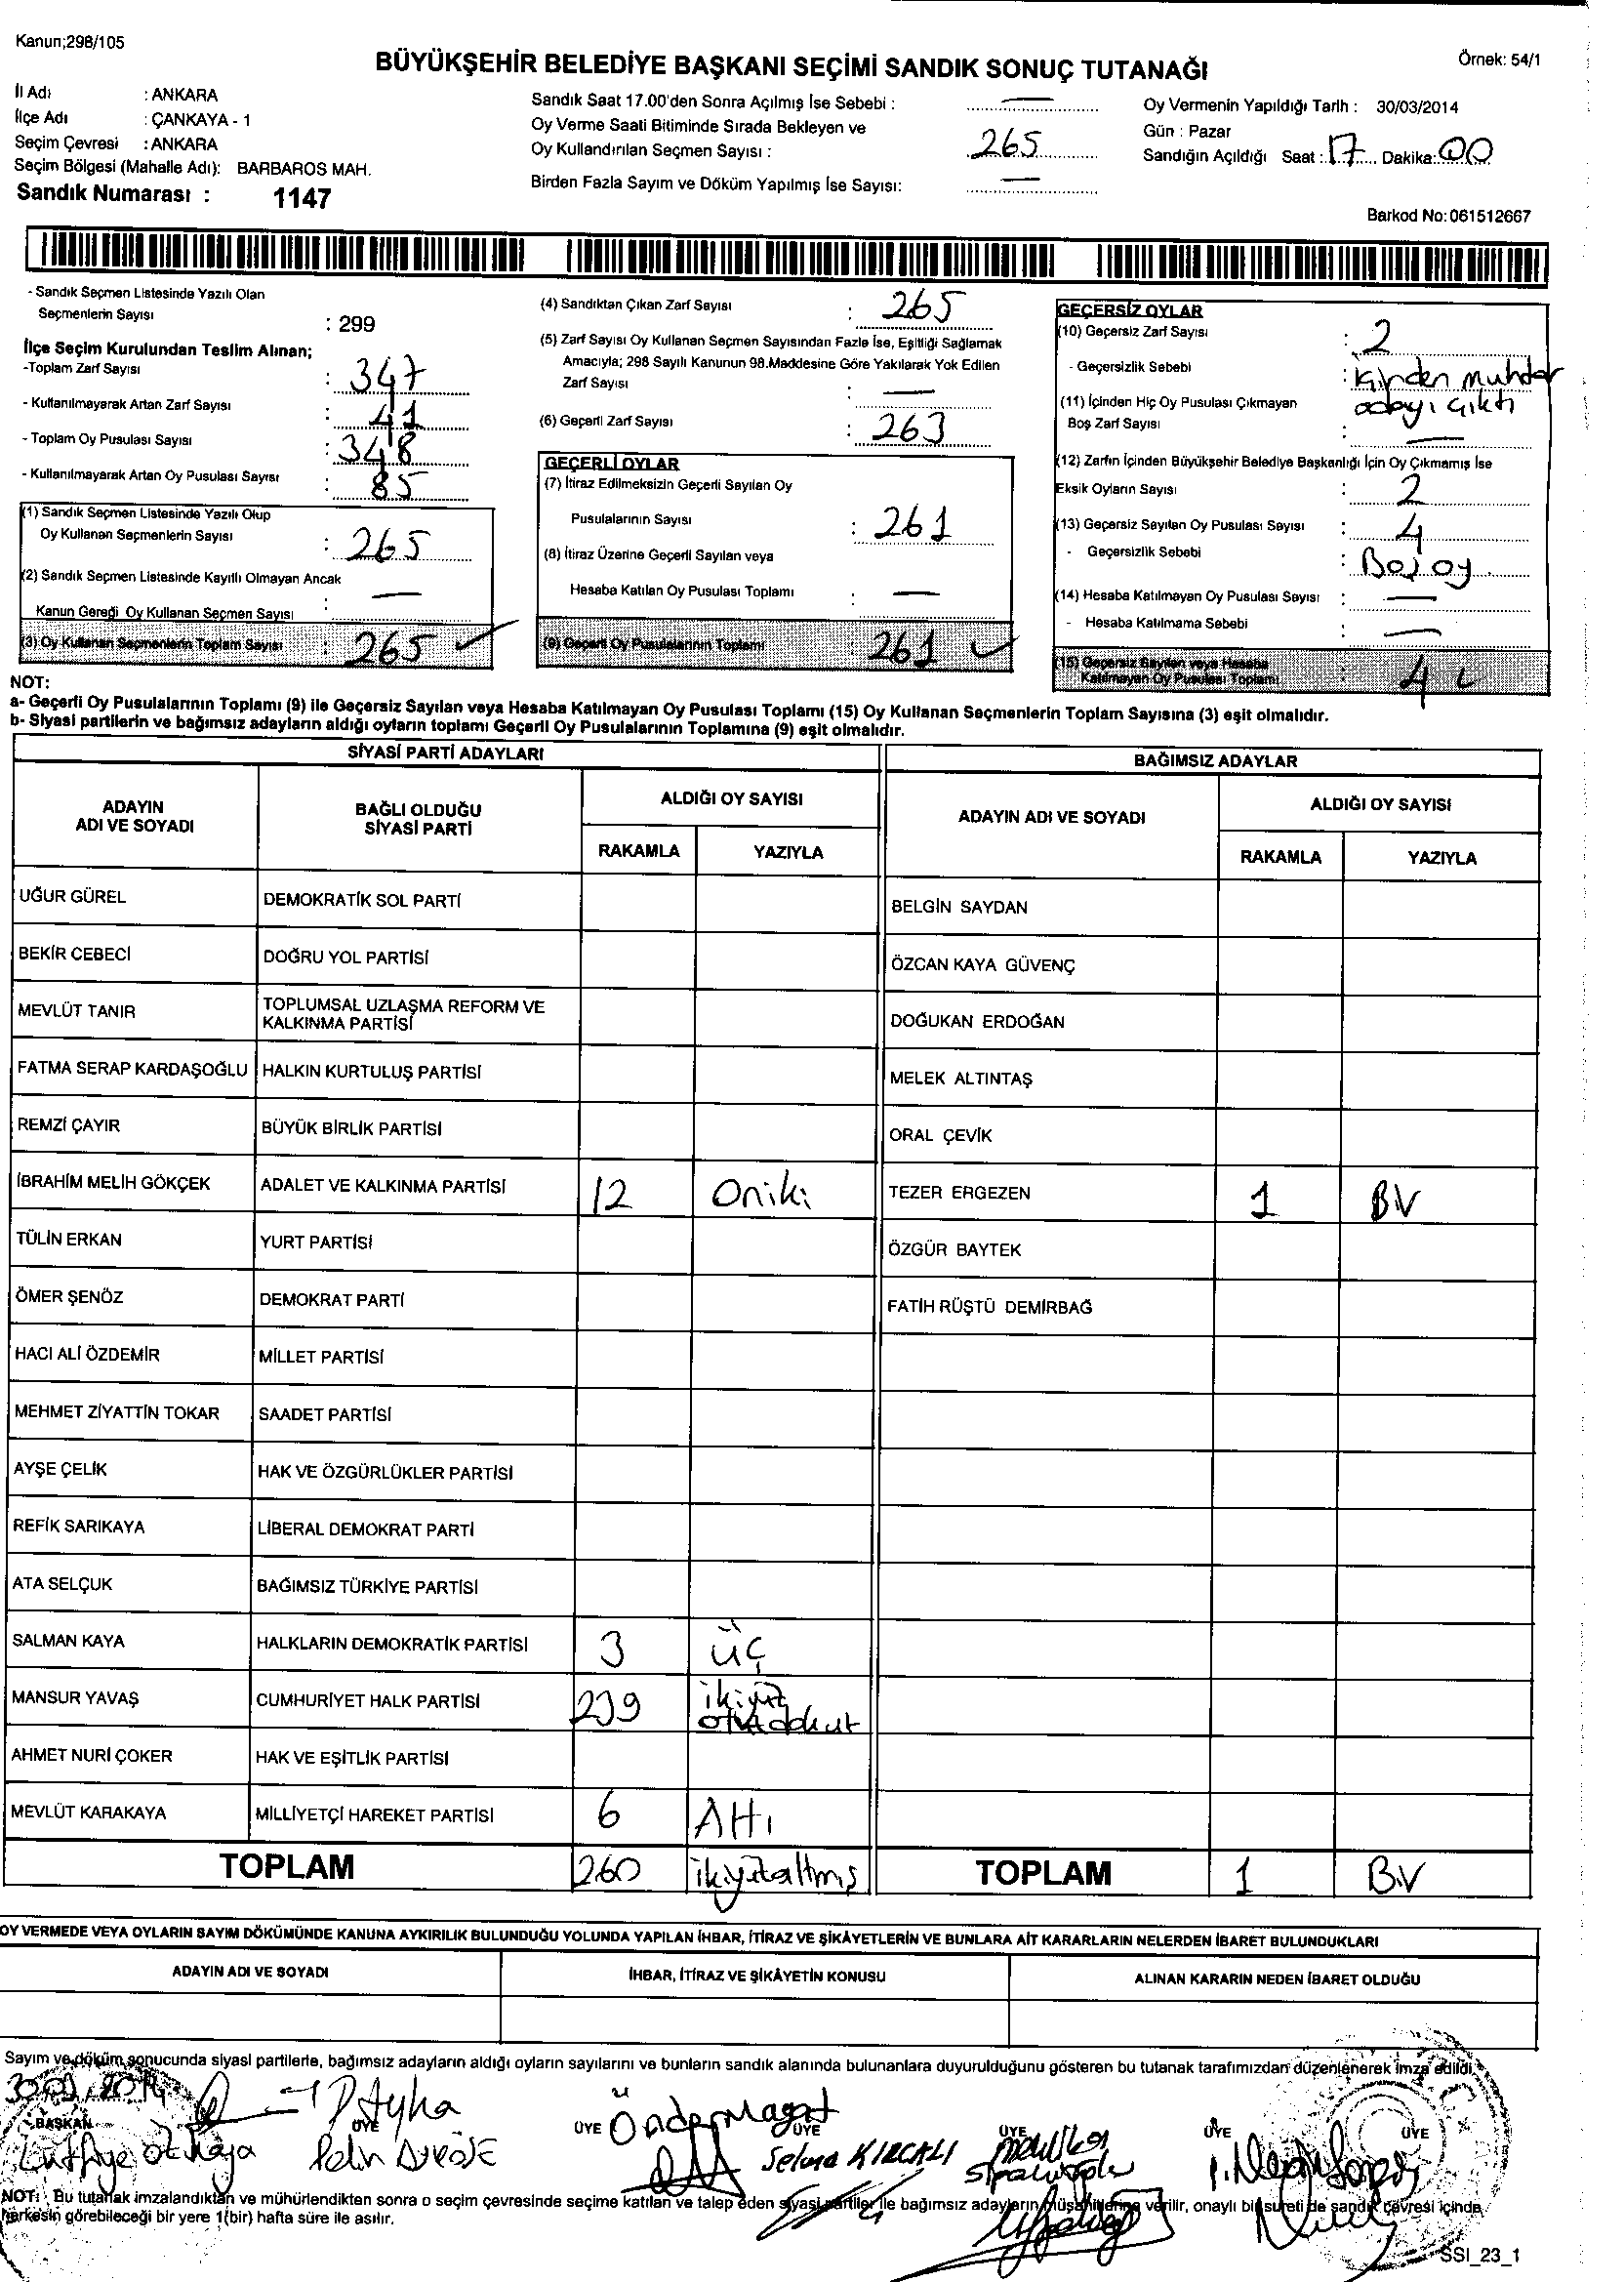 Kanun;298/105
Örnek: 54/1
BÜYÜKŞEHİR BELEDİYE BAŞKANI SEÇİMİ SANDIK SONUÇ TUTANAĞI
İl Adı : ANKARA
İlçe Adı : ÇANKAYA - 1
Seçim Çevresi : ANKARA
Seçim Bölgesi (Mahalle Adı): BARBAROS MAH.
Sandık Numarası : 1147
Sandık Saat 17.00'den Sonra Açılmış İse Sebebi : —
Oy Verme Saati Bitiminde Sırada Bekleyen ve
Oy Kullandırılan Seçmen Sayısı : 265
Birden Fazla Sayım ve Döküm Yapılmış İse Sayısı: —
Oy Vermenin Yapıldığı Tarih : 30/03/2014
Gün : Pazar
Sandığın Açıldığı Saat : 17 Dakika: 00
Barkod No: 061512667
- Sandık Seçmen Listesinde Yazılı Olan
Seçmenlerin Sayısı : 299
İlçe Seçim Kurulundan Teslim Alınan;
-Toplam Zarf Sayısı : 347
- Kullanılmayarak Artan Zarf Sayısı : 41
- Toplam Oy Pusulası Sayısı : 348
- Kullanılmayarak Artan Oy Pusulası Sayısı : 85
(1) Sandık Seçmen Listesinde Yazılı Olup
Oy Kullanan Seçmenlerin Sayısı : 265
(2) Sandık Seçmen Listesinde Kayıtlı Olmayan Ancak
Kanun Gereği Oy Kullanan Seçmen Sayısı : —
(3) Oy Kullanan Seçmenlerin Toplam Sayısı : 265
(4) Sandıktan Çıkan Zarf Sayısı : 265
(5) Zarf Sayısı Oy Kullanan Seçmen Sayısından Fazla İse, Eşitliği Sağlamak
Amacıyla; 298 Sayılı Kanunun 98.Maddesine Göre Yakılarak Yok Edilen
Zarf Sayısı : —
(6) Geçerli Zarf Sayısı : 263
GEÇERLİ OYLAR
(7) İtiraz Edilmeksizin Geçerli Sayılan Oy
Pusulalarının Sayısı : 261
(8) İtiraz Üzerine Geçerli Sayılan veya
Hesaba Katılan Oy Pusulası Toplamı : —
(9) Geçerli Oy Pusulalarının Toplamı : 261
GEÇERSİZ OYLAR
(10) Geçersiz Zarf Sayısı : 2
- Geçersizlik Sebebi : İçinden muhtar
adayı çıktı
(11) İçinden Hiç Oy Pusulası Çıkmayan
Boş Zarf Sayısı : —
(12) Zarfın İçinden Büyükşehir Belediye Başkanlığı İçin Oy Çıkmamış İse
Eksik Oyların Sayısı : 2
(13) Geçersiz Sayılan Oy Pusulası Sayısı : 4
- Geçersizlik Sebebi : Boş oy.
(14) Hesaba Katılmayan Oy Pusulası Sayısı : —
- Hesaba Katılmama Sebebi : —
(15) Geçersiz Sayılan veya Hesaba
Katılmayan Oy Pusulası Toplamı : 4
NOT:
a- Geçerli Oy Pusulalarının Toplamı (9) ile Geçersiz Sayılan veya Hesaba Katılmayan Oy Pusulası Toplamı (15) Oy Kullanan Seçmenlerin Toplam Sayısına (3) eşit olmalıdır.
b- Siyasi partilerin ve bağımsız adayların aldığı oyların toplamı Geçerli Oy Pusulalarının Toplamına (9) eşit olmalıdır.
SİYASİ PARTİ ADAYLARI
BAĞIMSIZ ADAYLAR
ADAYIN ADI VE SOYADI
BAĞLI OLDUĞU SİYASİ PARTİ
ALDIĞI OY SAYISI
RAKAMLA YAZIYLA
ADAYIN ADI VE SOYADI
ALDIĞI OY SAYISI
RAKAMLA YAZIYLA
UĞUR GÜREL DEMOKRATİK SOL PARTİ BELGİN SAYDAN
BEKİR CEBECİ DOĞRU YOL PARTİSİ ÖZCAN KAYA GÜVENÇ
MEVLÜT TANIR TOPLUMSAL UZLAŞMA REFORM VE KALKINMA PARTİSİ DOĞUKAN ERDOĞAN
FATMA SERAP KARDAŞOĞLU HALKIN KURTULUŞ PARTİSİ MELEK ALTINTAŞ
REMZİ ÇAYIR BÜYÜK BİRLİK PARTİSİ ORAL ÇEVİK
İBRAHİM MELİH GÖKÇEK ADALET VE KALKINMA PARTİSİ 12 Oniki TEZER ERGEZEN 1 BİV
TÜLİN ERKAN YURT PARTİSİ ÖZGÜR BAYTEK
ÖMER ŞENÖZ DEMOKRAT PARTİ FATİH RÜŞTÜ DEMİRBAĞ
HACI ALİ ÖZDEMİR MİLLET PARTİSİ
MEHMET ZİYATTİN TOKAR SAADET PARTİSİ
AYŞE ÇELİK HAK VE ÖZGÜRLÜKLER PARTİSİ
REFİK SARIKAYA LİBERAL DEMOKRAT PARTİ
ATA SELÇUK BAĞIMSIZ TÜRKİYE PARTİSİ
SALMAN KAYA HALKLARIN DEMOKRATİK PARTİSİ 3 üç
MANSUR YAVAŞ CUMHURİYET HALK PARTİSİ 239 ikiyüz
AHMET NURİ ÇOKER HAK VE EŞİTLİK PARTİSİ
MEVLÜT KARAKAYA MİLLİYETÇİ HAREKET PARTİSİ 6 Altı
TOPLAM 260 ikiyüzaltmış TOPLAM 1 BİV
OY VERMEDE VEYA OYLARIN SAYIM DÖKÜMÜNDE KANUNA AYKIRILIK BULUNDUĞU YOLUNDA YAPILAN İHBAR, İTİRAZ VE ŞİKÂYETLERİN VE BUNLARA AİT KARARLARIN NELERDEN İBARET BULUNDUKLARI
ADAYIN ADI VE SOYADI İHBAR, İTİRAZ VE ŞİKÂYETİN KONUSU ALINAN KARARIN NEDEN İBARET OLDUĞU
Sayım ve döküm sonucunda siyasi partilerle, bağımsız adayların aldığı oyların sayılarını ve bunların sandık alanında bulunanlara duyurulduğunu gösteren bu tutanak tarafımızdan düzenlenerek imza edildi.
BAŞKAN ÜYE ÜYE ÜYE ÜYE ÜYE ÜYE
Önder Magat
Selma KIRCALI
NOT: Bu tutanak imzalandıktan ve mühürlendikten sonra o seçim çevresinde seçime katılan ve talep eden siyasi partiler ile bağımsız adayların müşahitlerine verilir, onaylı bir sureti de sandık çevresi içinde
herkesin görebileceği bir yere 1(bir) hafta süre ile asılır.
SSI_23_1